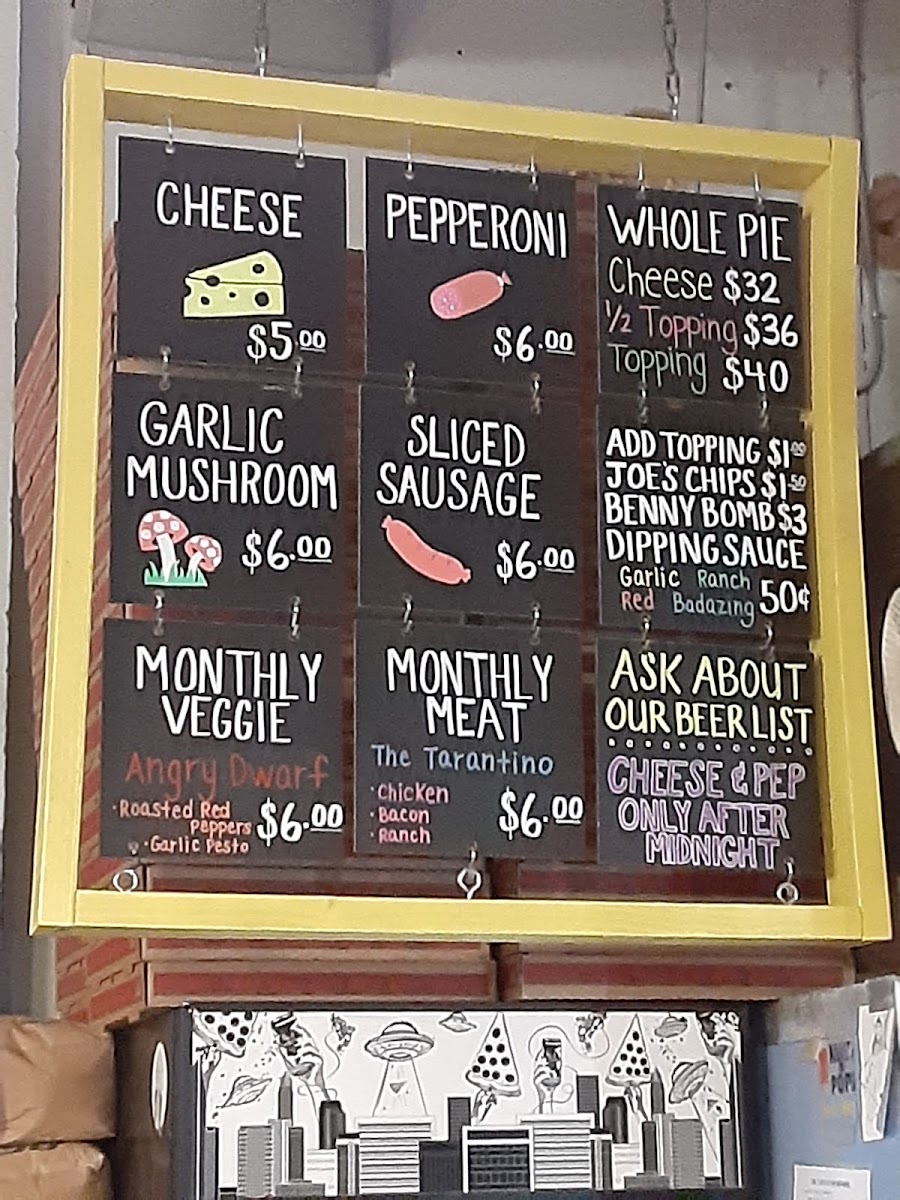 CHEESE
$5.00
PEPPERONI
$6.00
WHOLE PIE
Cheese $32
1/2 Topping $36
Topping $40
GARLIC
MUSHROOM
$6.00
SLICED
SAUSAGE
$6.00
ADD TOPPING $1.00
JOE'S CHIPS $1.50
BENNY BOMB $3
DIPPING SAUCE
Garlic Ranch
Red Badazing 50¢
MONTHLY
VEGGIE
Angry Dwarf
·Roasted Red
Peppers
·Garlic Pesto
$6.00
MONTHLY
MEAT
The Tarantino
·Chicken
·Bacon
·Ranch
$6.00
ASK ABOUT
OUR BEER LIST
CHEESE & PEP
ONLY AFTER
MIDNIGHT